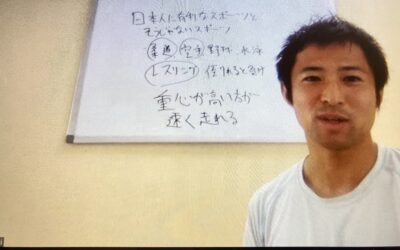 日本人に有利なスポーツと
そうじゃないスポーツ
柔道 空手 野球 水泳
レスリング 倒れると負け
重心が高い方が
速く走れる